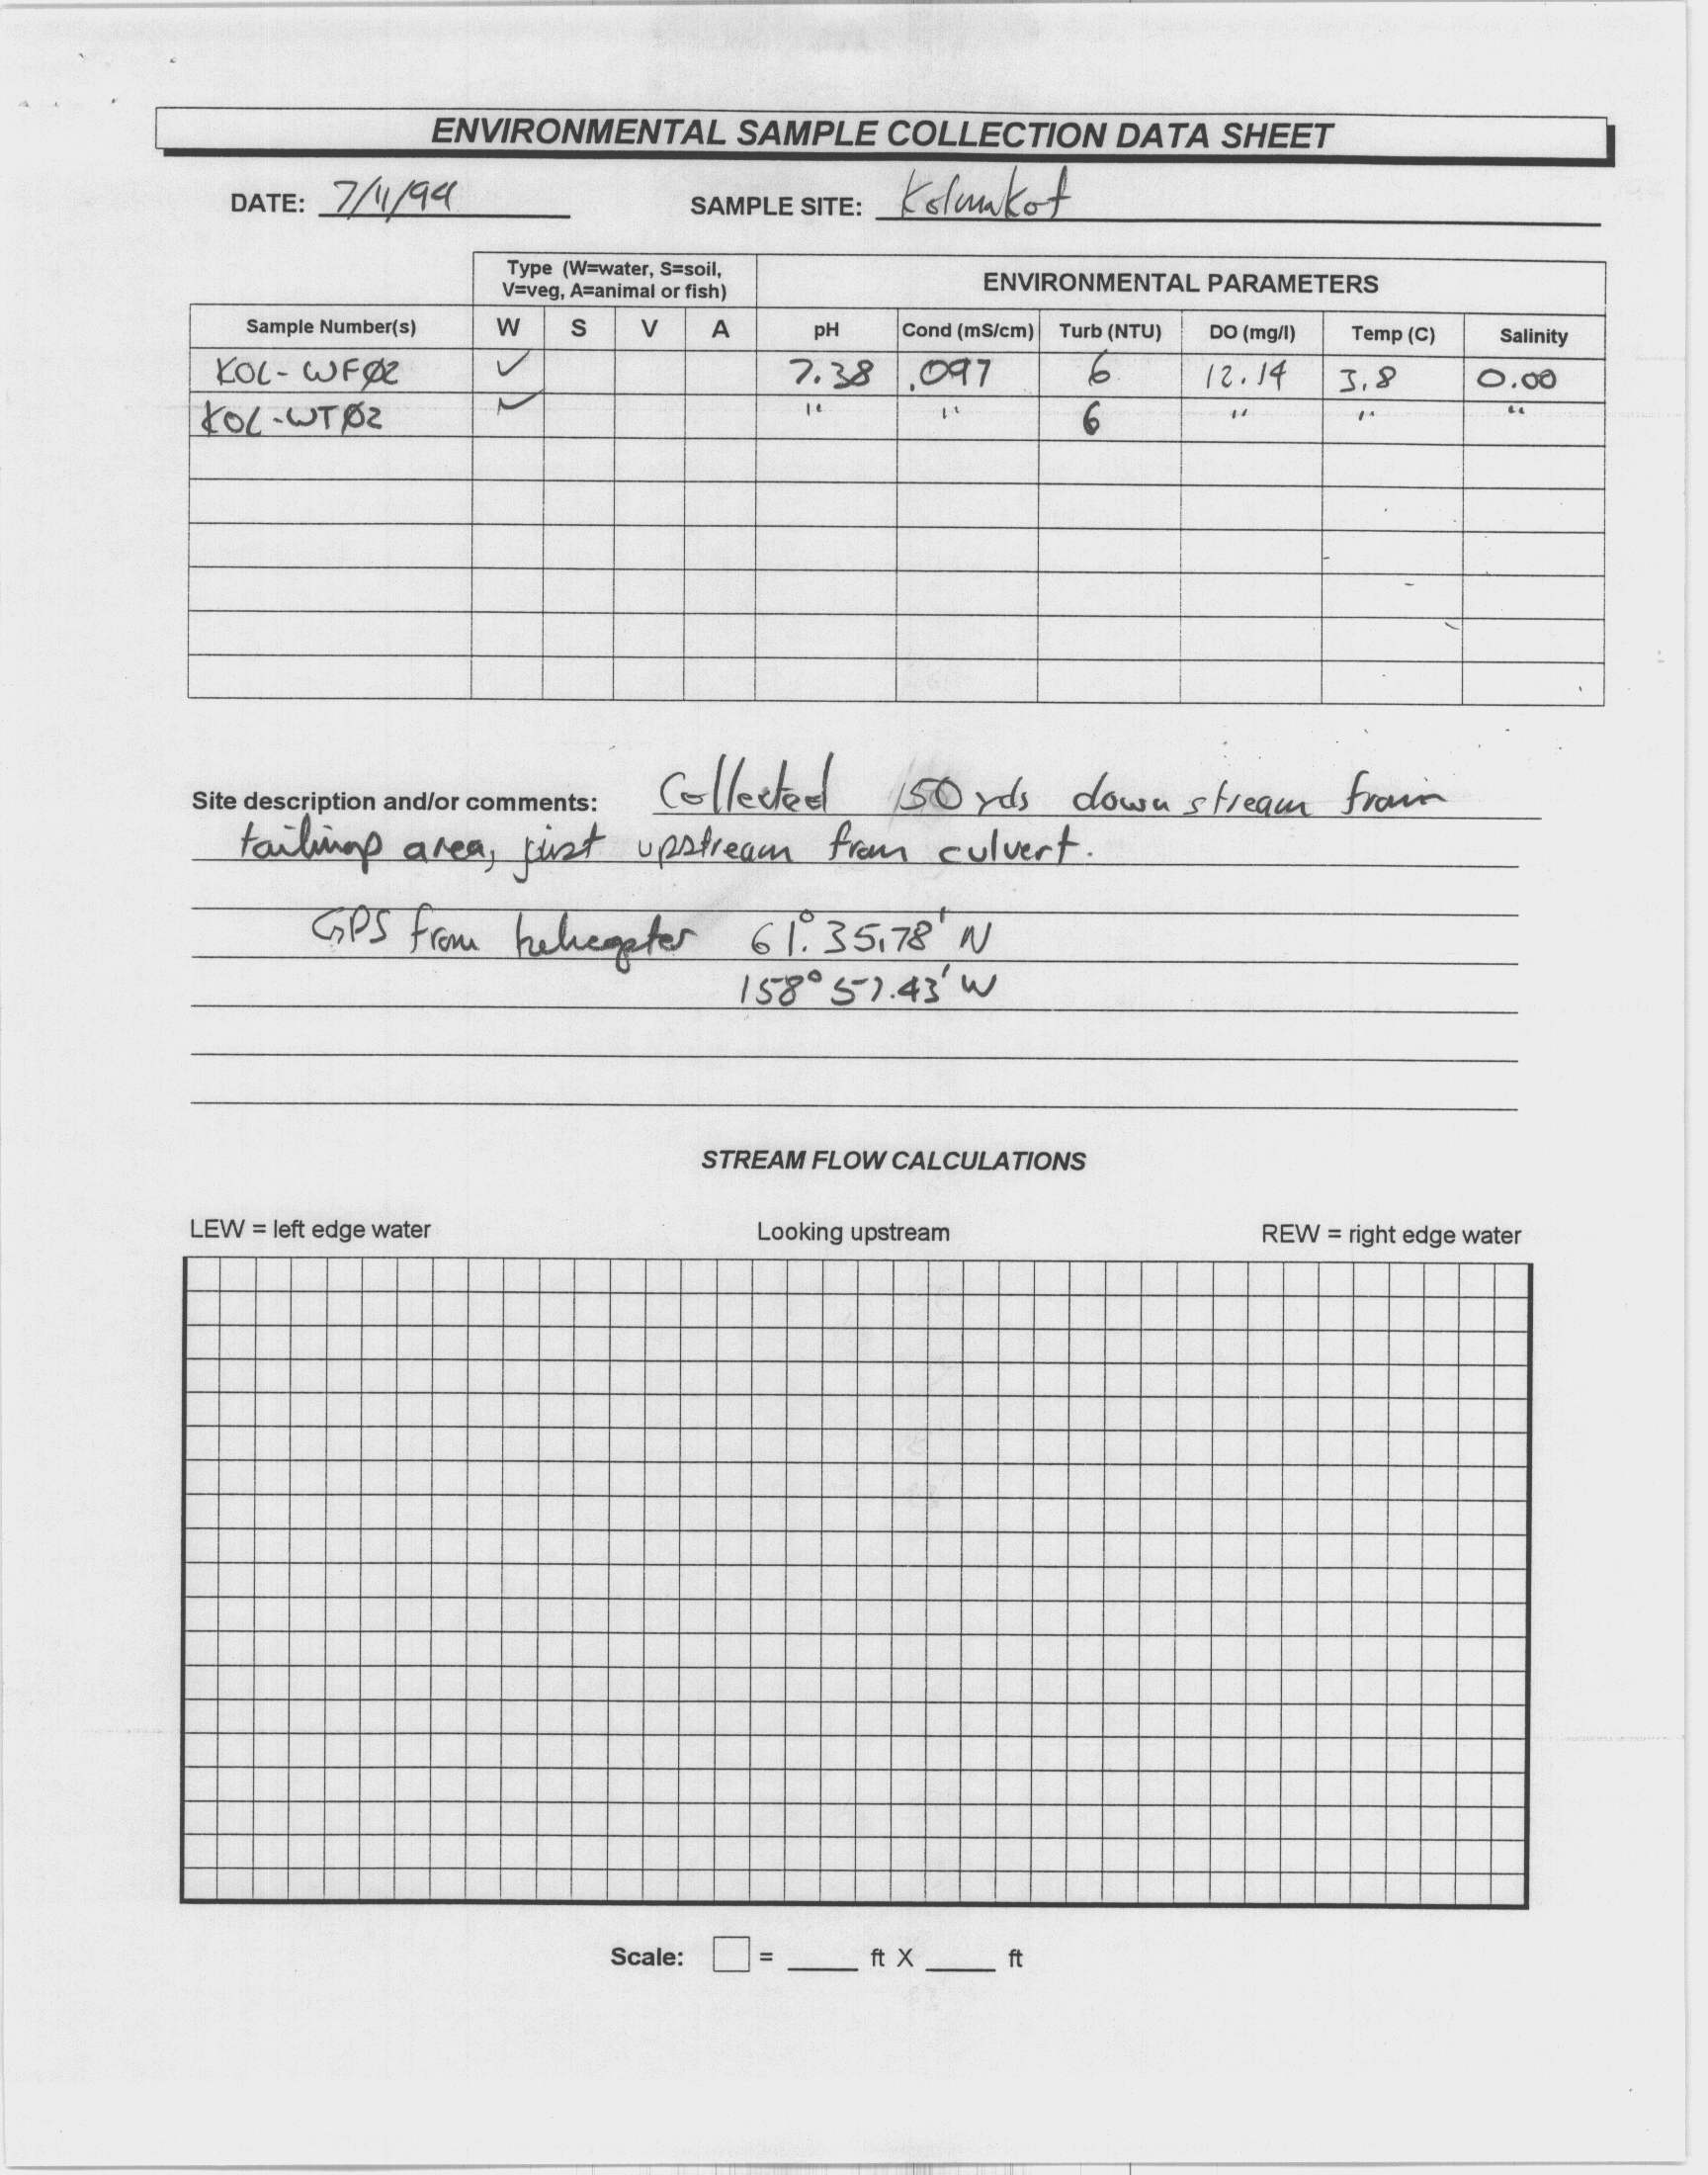 ENVIRONMENTAL SAMPLE COLLECTION DATA SHEET
DATE: 7/11/94 SAMPLE SITE: Kolmakof
Type (W=water, S=soil, V=veg, A=animal or fish) ENVIRONMENTAL PARAMETERS
Sample Number(s) W S V A pH Cond (mS/cm) Turb (NTU) DO (mg/l) Temp (C) Salinity
KOL-WFØ2 ✓ 7.38 .097 6 12.14 3.8 0.00
KOL-WTØ2 ✓ " " 6 " " "
Site description and/or comments: Collected 150 yds downstream from
tailings area, just upstream from culvert.
GPS from helicopter 61° 35.78' N
158° 57.43' W
STREAM FLOW CALCULATIONS
LEW = left edge water Looking upstream REW = right edge water
Scale: = ft X ft